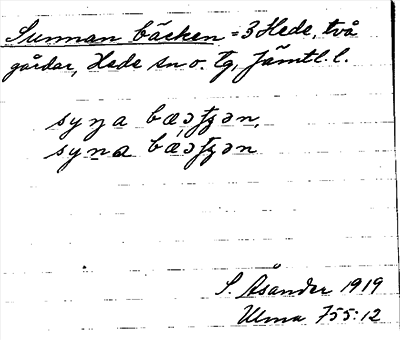 Sunnan bäcken = 3 Hede, två
gårdar, Hede sn o. tg, Jämtl. l.
syŋa bæ̣ɔʃʒən,
syna bæ̣ɔʃʒən
S. Åsander 1919
Ulma 755:12